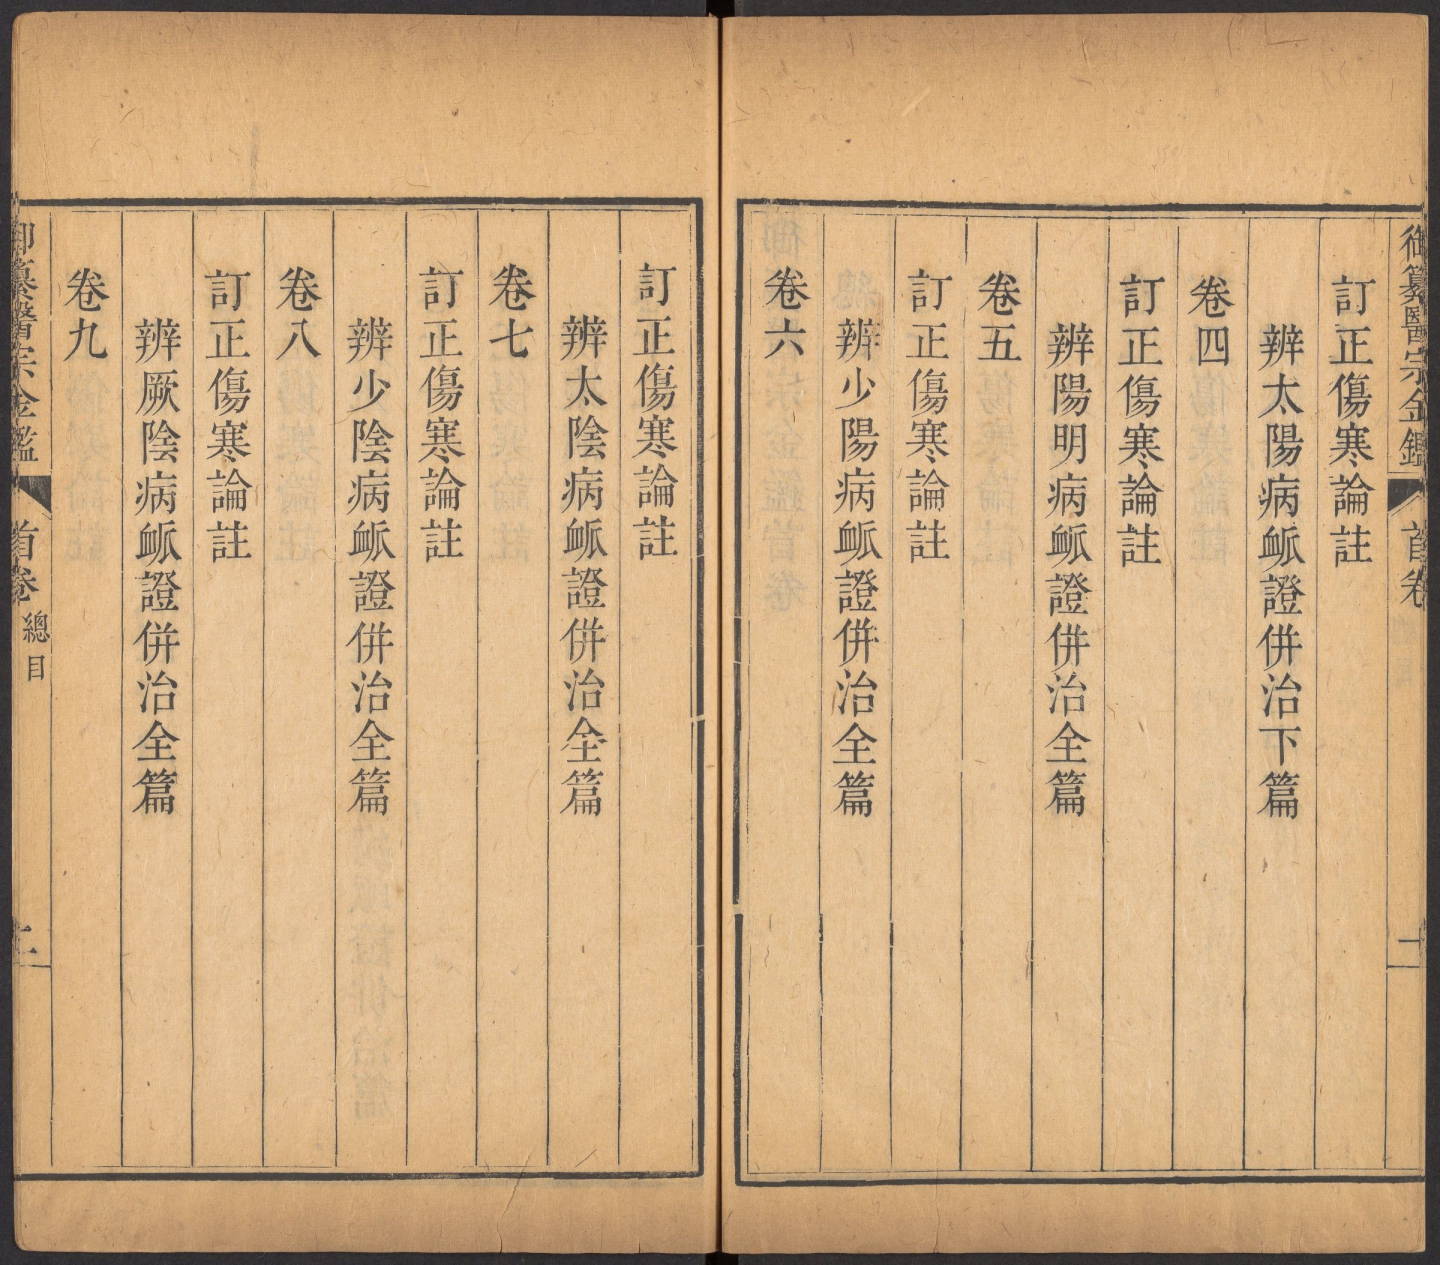 御纂醫宗金鑑 首卷 一
訂正傷寒論註
辨太陽病衇證併治下篇
卷四
訂正傷寒論註
辨陽明病衇證併治全篇
卷五
訂正傷寒論註
辨少陽病衇證併治全篇
卷六
訂正傷寒論註
辨太陰病衇證併治全篇
卷七
訂正傷寒論註
辨少陰病衇證併治全篇
卷八
訂正傷寒論註
辨厥陰病衇證併治全篇
卷九
御纂醫宗金鑑 首卷 總目